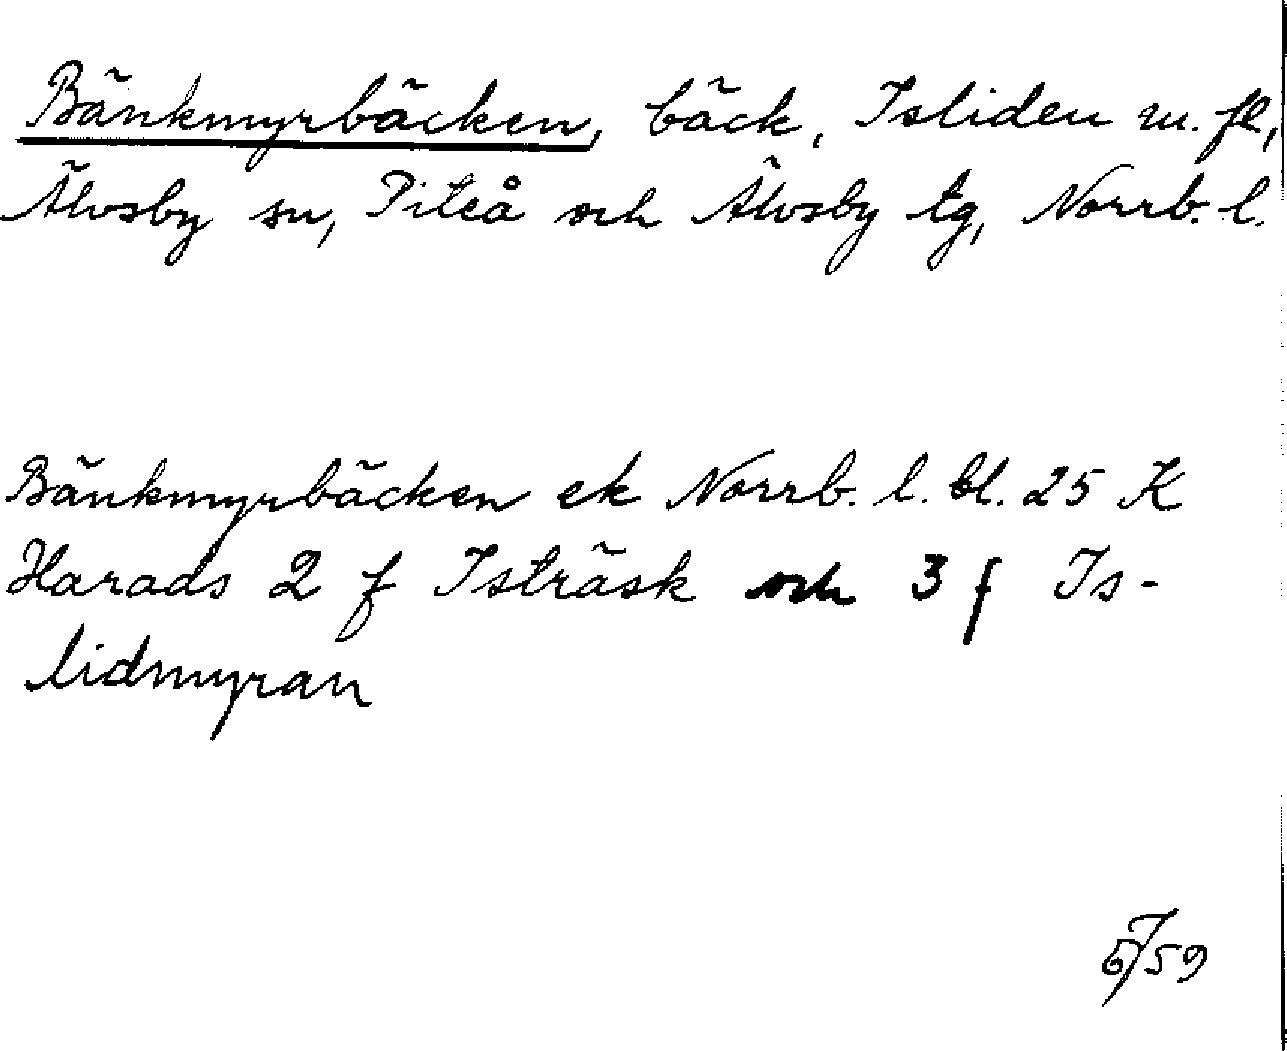 Bänkmyrbäcken, bäck, Isliden m. fl,
Älvsby sn, Piteå och Älvsby tg, Norrb. l.
Bänkmyrbäcken ek Norrb. l. bl. 25 K
Harads 2 f Isträsk och 3 f Is-
lidmyran